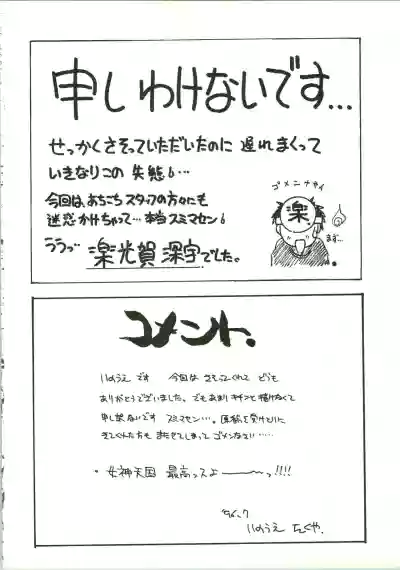 申しわけないです...
せっかくさそっていただいたのに 遅れまくって
いきなりこの 失態 …
今回は、あちこち スタッフの方々にも
迷惑かけちゃって… 本当 スミマセン
ゴメンナサイ
楽
まず…
ううっ… 楽光賀 深字でした。
コメント。
いのうえ です 今回は さそってくれて どうも
ありがとうございました。でもあまり キチンと描けなくて
申し訳ないです スミマセン…。原稿を受けとりに
きてくれた方も またせてしまって ゴメンなさい……
・女神天国 最高ッスよ〜〜っ!!!!
'96.7
いのうえ たくや.